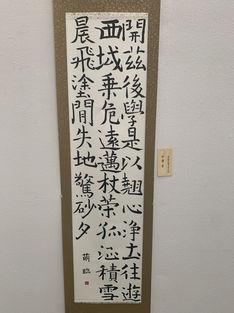 開茲後學是以翹心浄土往遊
西域乗危遠邁杖策孤征積雪
晨飛塗閒失地驚砂夕